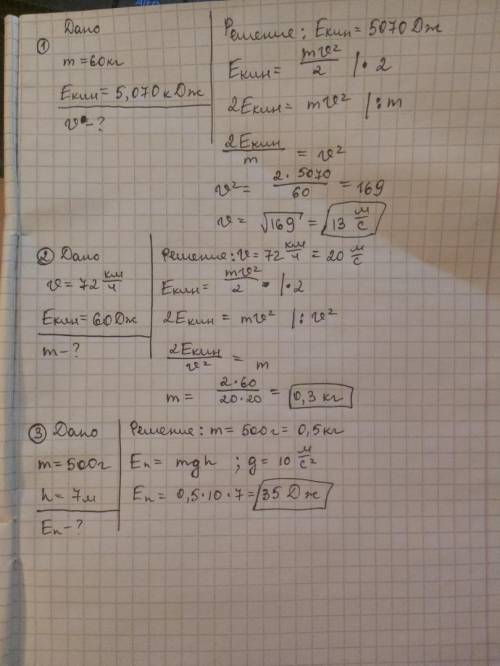 ① Дано
m = 60кг
Eкин = 5,070 кДж
v - ?
Решение: Eкин = 5070 Дж
Eкин = mv²/2 |· 2
2Eкин = mv² |: m
2Eкин/m = v²
v² = 2·5070/60 = 169
v = √169 = 13 м/с
② Дано
v = 72 км/ч
Eкин = 60 Дж
m - ?
Решение: v = 72 км/ч = 20 м/с
Eкин = mv²/2 |· 2
2Eкин = mv² |: v²
2Eкин/v² = m
m = 2·60/20·20 = 0,3 кг
③ Дано
m = 500г
h = 7м
Eп - ?
Решение: m = 500г = 0,5кг
Eп = mgh ; g = 10 м/с²
Eп = 0,5·10·7 = 35 Дж